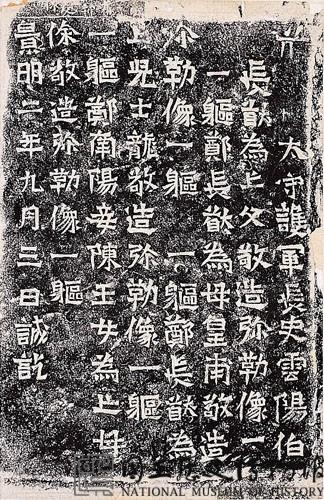 大守護軍長史雲陽伯
長猷為亡父敬造弥勒像一
一軀鄭長猷為母皇甫敬造
弥勒像一軀 一軀鄭長猷為
亡兒士龍敬造弥勒像一軀
一軀鄭南陽妾陳王女為亡母
徐敬造弥勒像一軀
景明二年九月三日誡訖
國立歷史博物館
NATIONAL MUSEUM OF HISTORY